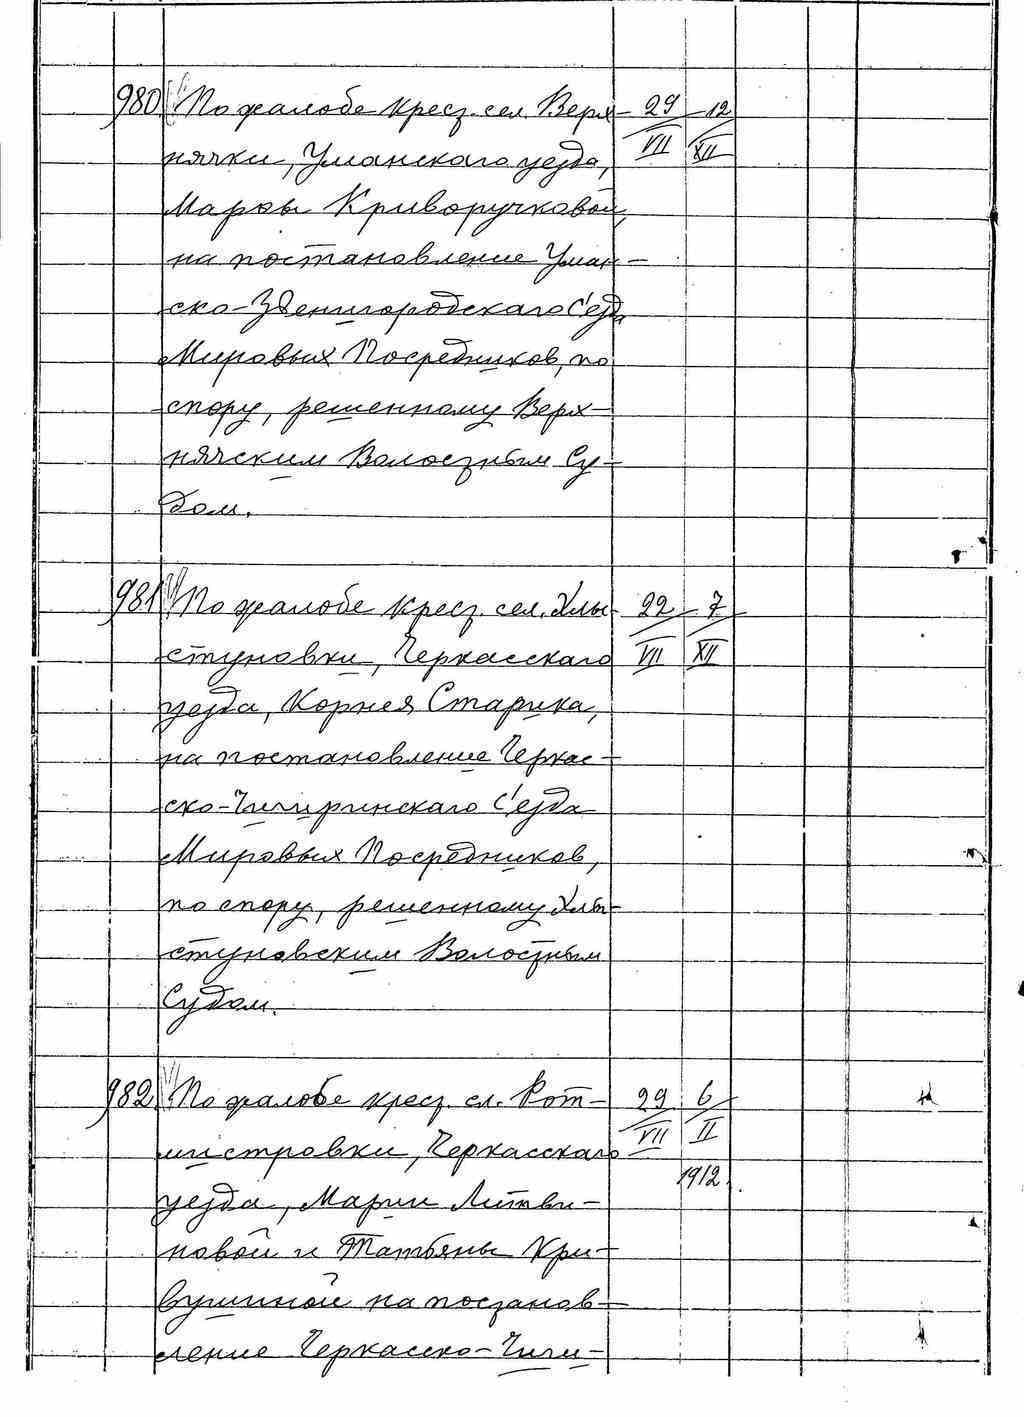 980 По жалобе крест. сел. Верх- 29 12
нячки, Уманскаго уезда, VII XII
Марфы Криворучковой,
на постановление Уман-
ско-Звенигородскаго С'езда
Мировых Посредников, по
спору, решенному Верх-
нячским Волостным Су-
дом.
981 По жалобе крест. сел. Хлы- 22 7
стуновки, Черкасскаго VII XII
уезда, Корнея Старика,
на постановление Черкас-
ско-Чигиринскаго С'езда
Мировых Посредников,
по спору, решенному Хлы-
стуновским Волостным
Судом.
982 По жалобе крест. сл. Рот- 29 6
мистровки, Черкасскаго VII II
уезда, Марии Литви- 1912.
новой и Татьяны Кри-
вушиной на постанов-
ление Черкасско-Чиги-